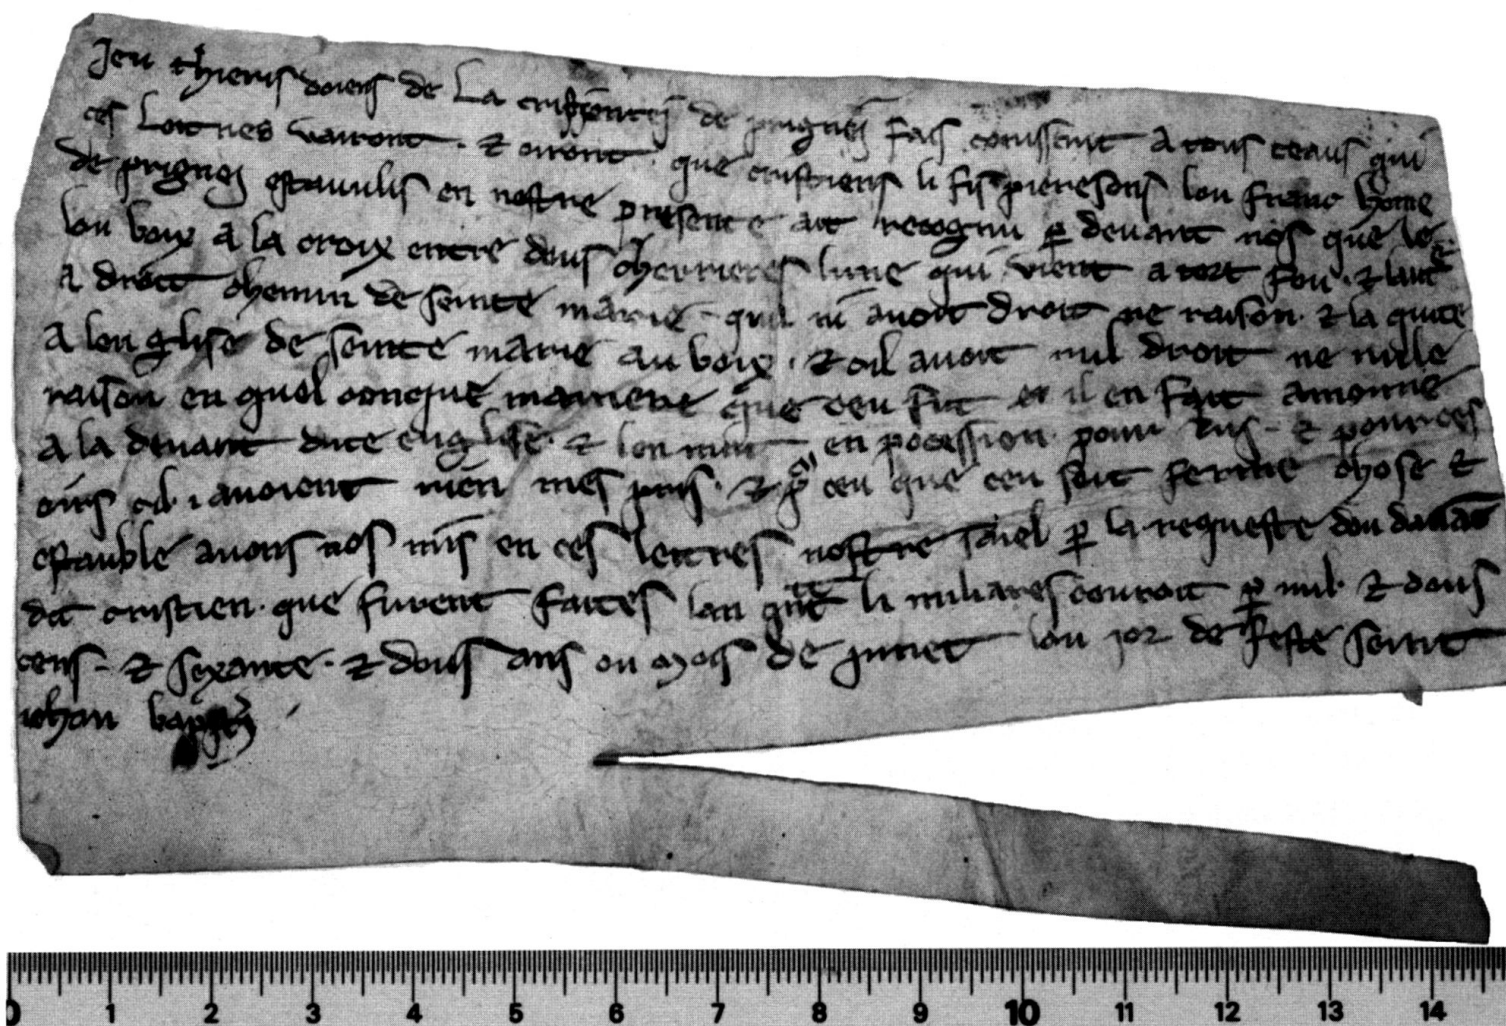 Jeu thieris doiens de La cristientei de prignei fas conissent a tous ceaus qui
ces Lettres vairont · & oiront · que cristiens li fis pieresons lou franc home
de prignei estaublis en nostre presente ait recognu p devant nos que le
lou boix a la croix entre dous cherrieres lune qui vient a tort fou · & lautre
a droit chemin de seinte marie · quil ni avoit droit ne raison · & la quite
A lou glise de seinte marie au boix · & cil avoit nul droit ne nule
raison en quel conque maniere que ceu fut et il en fait amone
A la devant dite englise · & len mut en pocession pour dus · & pour ces
oirs cil i avoient rien mes pris · & p ceu que ceu soit ferme chose &
estauble avons nos mis en ces lettres nostre saiel p la requeste dou davat
dit cristien · que furent faites lan qnt li miliares couroit p mil · & dous
cens · & sexante · & dous ans ou mois de junet lou jor de feste seint
iehan
0 1 2 3 4 5 6 7 8 9 10 11 12 13 14